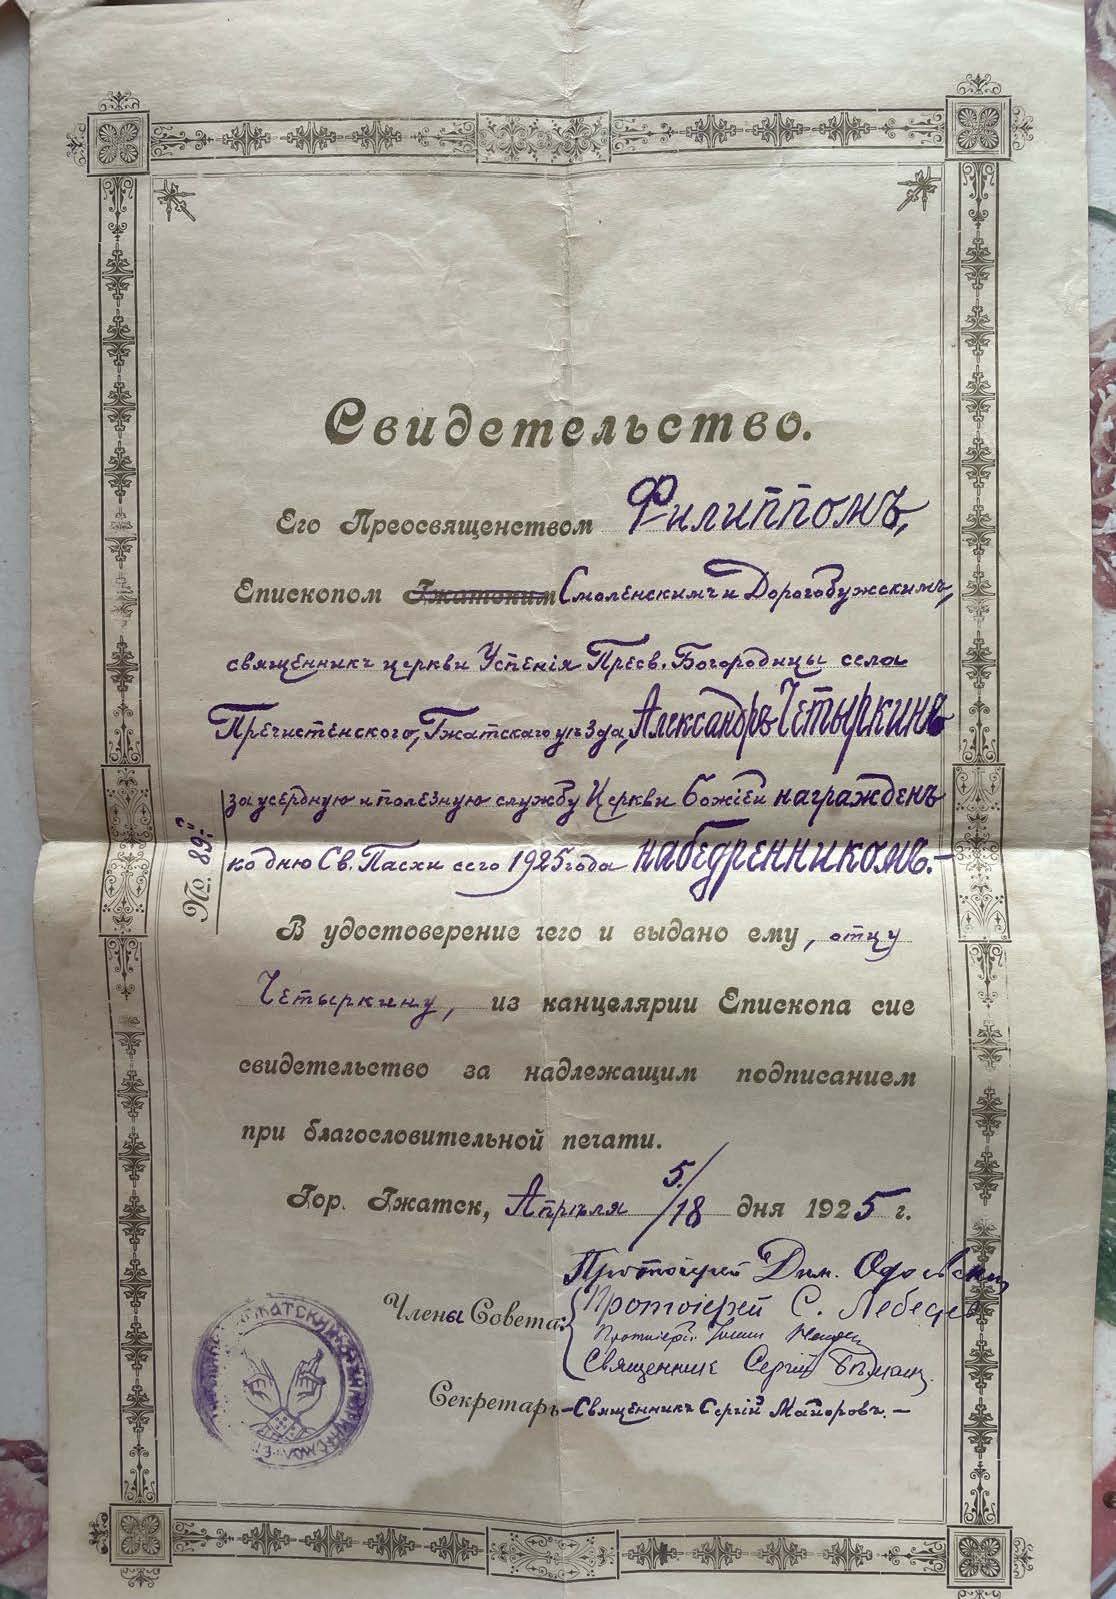 Свидетельство.
Его Преосвященством Филиппомъ,
Епископом Гжатским Смоленскимъ и Дорогобужскимъ,
священникъ церкви Успенія Пресв. Богородицы села
Пречистенского, Гжатскаго уѣзда, Александръ Четыркинъ
за усердную и полезную службу Церкви Божіей награжденъ
ко дню Св. Пасхи сего 1925 года набедренникомъ.-
No. 89.
В удостоверение чего и выдано ему, отцу
Четыркину, из канцелярии Епископа сие
свидетельство за надлежащим подписанием
при благословительной печати.
Гор. Гжатск, Апрѣля 5/18 дня 1925 г.
Протоіерей Дим.
Члены Совета: Протоіерей С. Лебедев
Протоіерей
Священник Сергій
Секретарь - Священникъ Сергій Майоровъ. -